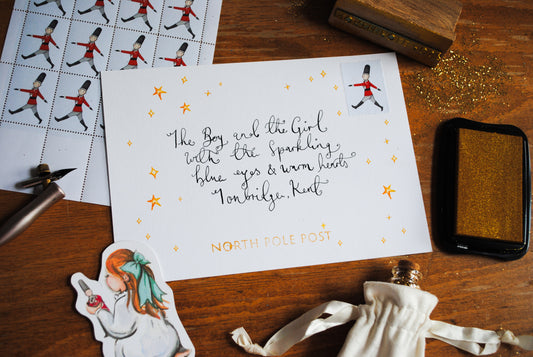 The Boy and the Girl
with the sparkling
blue eyes & warm hearts
Tonbridge, Kent
NORTH POLE POST